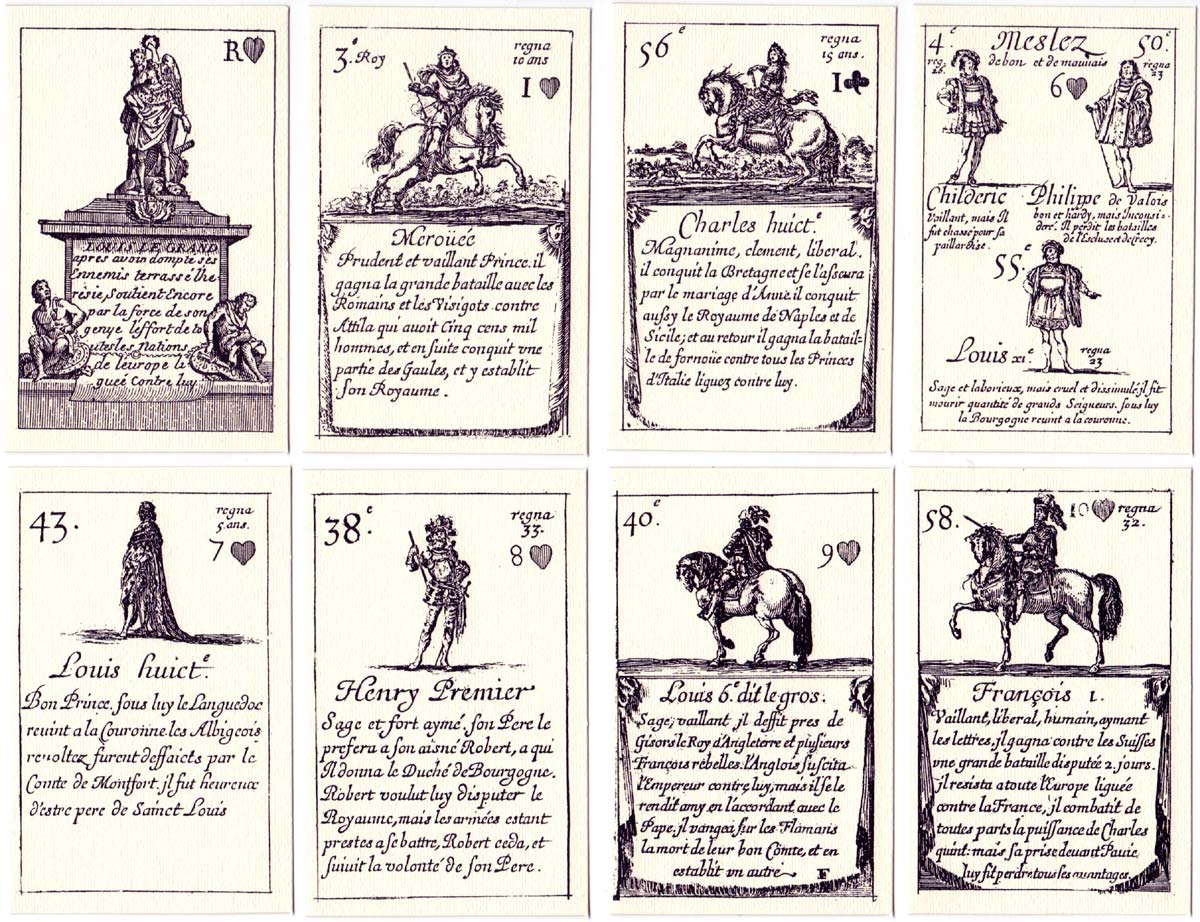 R
LOUIS LE GRAND
apres avoir dompte ses
Ennemis terrassé l'he
resie, Soutient Encore
par la force de son
genye l'effort de to
utes les Nations
de leurope li
guée Contre luy
3.e Roy
regna
10 ans
I
Meroüée
Prudent et vaillant Prince. il
gagna la grande bataille avec les
Romains et les Visigots contre
Attila qui avoit Cinq cens mil
hommes, et en suite conquit vne
partie des Gaules, et y establit
son Royaume.
56e
regna
15 ans.
I
Charles huict.e
Magnanime, clement, liberal.
il conquit la Bretagne et se l'assura
par le mariage d'Anne. il conquit
aussy le Royaume de Naples et de
Sicile; et au retour il gagna la batail-
le de fornoüe contre tous les Princes
d'Italie liguez contre luy.
4.e
reg.
26.
Meslez
de bon et de mauuais
50.e
regna
23
6
Childeric
Vaillant, mais Il
fut chassé pour sa
paillardise.
Philippe de Valois
bon et hardy, mais Inconsi-
deré. Il perdit les batailles
de l'Escluse et de Crecy.
55.e
Louis XI.e
regna
23
Sage et laborieux, mais cruel et dissimulé, il fit
mourir quantité de grands Seigneurs. sous luy
la Bourgogne reuint a la couronne.
43.
regna
5. ans.
7
Louis huict.e
Bon Prince. sous luy le Languedoc
reuint a la Couronne. les Albigeois
reuoltez furent deffaicts par le
Comte de Montfort. il fut heureux
d'estre pere de Sainct Louis
38.e
regna
33.
8
Henry Premier
Sage et fort aymé. son Pere le
prefera a son aisné Robert, a qui
Il donna le Duché de Bourgogne.
Robert voulut luy disputer le
Royaume, mais les armées estant
prestes a se battre, Robert ceda, et
suiuit la volonté de son Pere.
40.e
9
Louis 6.e dit le gros.
Sage, vaillant, il deffit pres de
Gisors le Roy d'Angleterre et plusieurs
François rebelles. l'Anglois suscita
l'Empereur contre luy, mais il se le
rendit amy en l'accordant avec le
Pape. il vangea sur les Flamans
la mort de leur bon Comte, et en
establit vn autre F
58.
10
regna
32.
François I.
Vaillant, liberal, humain, aymant
les lettres. il gagna contre les Suisses
vne grande bataille disputée 2. jours.
il resista a toute l'Europe liguée
contre la France, il combatit de
toutes parts la puissance de Charles
quint: mais sa prise deuant Pauie,
luy fit perdre tous les auantages.